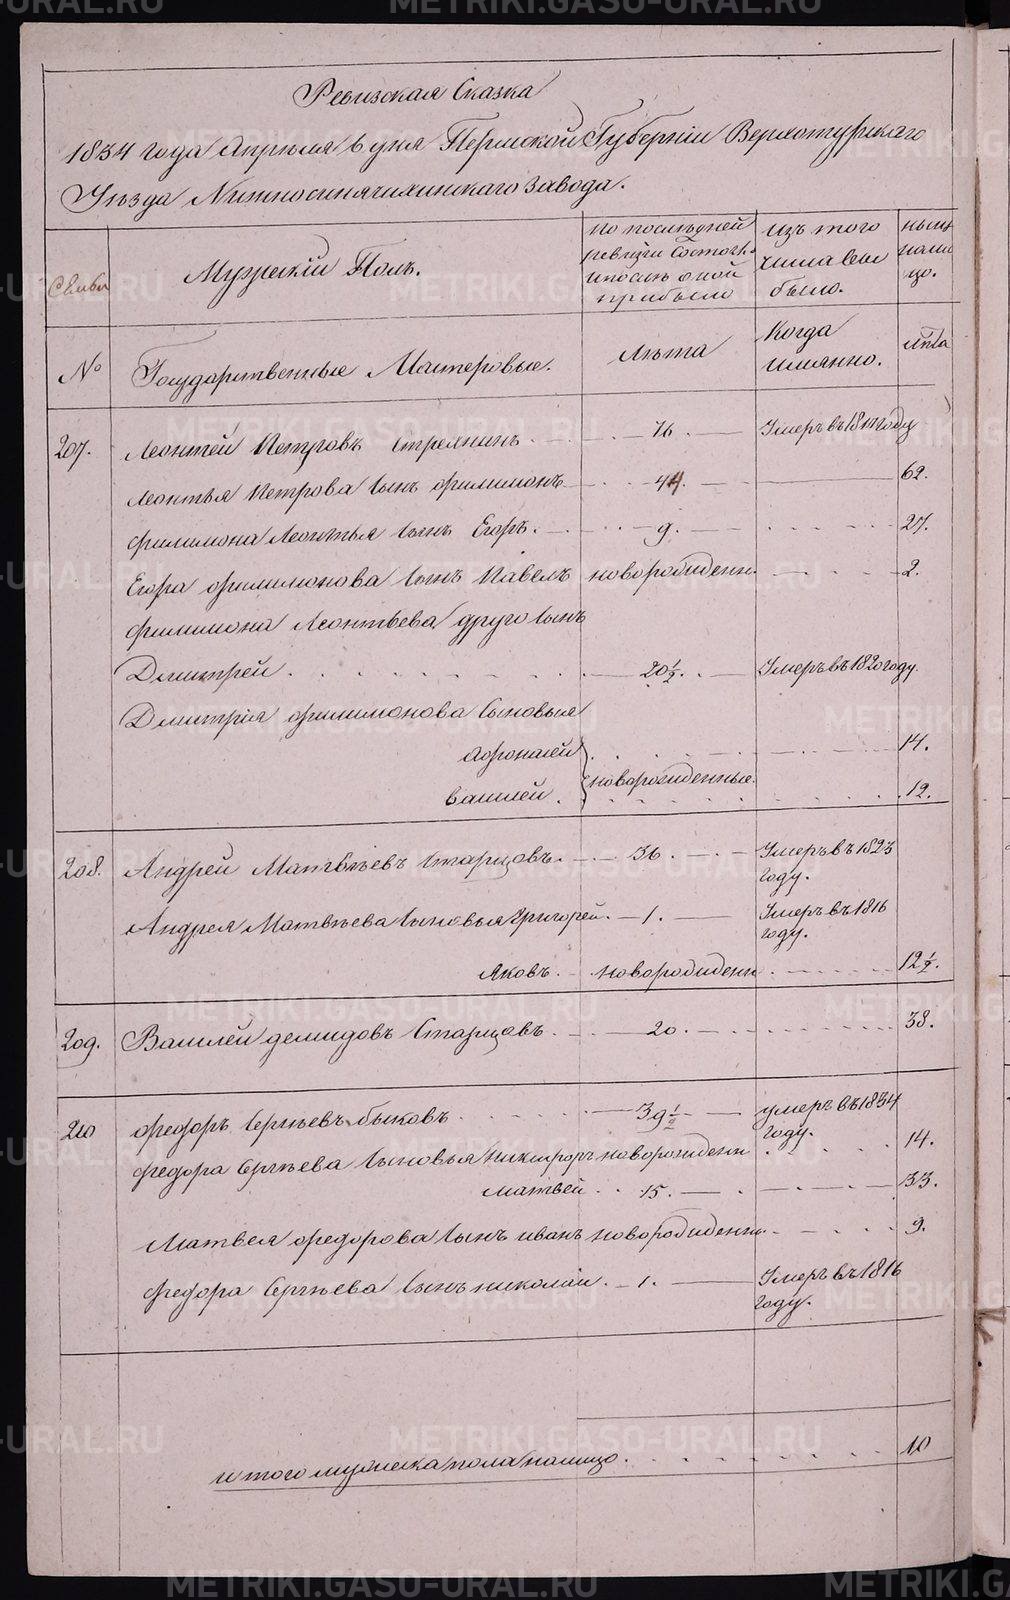 Ревизская Сказка
1834 года Апреля 6 дня Пермской Губерніи Верхотурскаго
Уезда Нижносинячихинскаго завода.
Семьи
Мужескій Полъ.
по последней
ревизіи состоял.
и после оной
прибыло
изъ того
числа вы
было.
ныне
нали
цо.
№
Государственные Мастеровые.
лѣта
Когда
имянно.
лѣта
207. Леонтей Петровъ Стрехнинъ 76. Умеръ въ 18 году
Леонтья Петрова сынъ филимонъ 44. 62.
филимона Леонтья сынъ Егоръ. 9. 27.
Егора филимонова сынъ Павелъ новорожденн. 2.
филимона Леонтьева друго сынъ
Дмитрей 20½. Умеръ въ 1820 году.
Дмитрія филимонова сыновья
афонасей 14.
новорожденные.
василей. 12.
208. Андрей Матвѣевъ Старцовъ. 36. Умеръ въ 1823
году.
Андрея Матвѣева сыновья Григорей. 1. Умеръ въ 1816
году.
Яковъ. новорожденн 12½.
209. Василей демидовъ Старцовъ. 20. 38.
210 федоръ Сергѣевъ быковъ 39½ умеръ въ 1834
году.
федора Сергѣева сыновья Никифоръ новорожденн 14.
матвей 15. 33.
Матвея федорова сынъ иванъ новорожденн. 9.
федора Сергѣева сынъ николай. 1. Умеръ въ 1816
году.
итого мужеска пола налицо. 10
METRIKI.GASO-URAL.RU